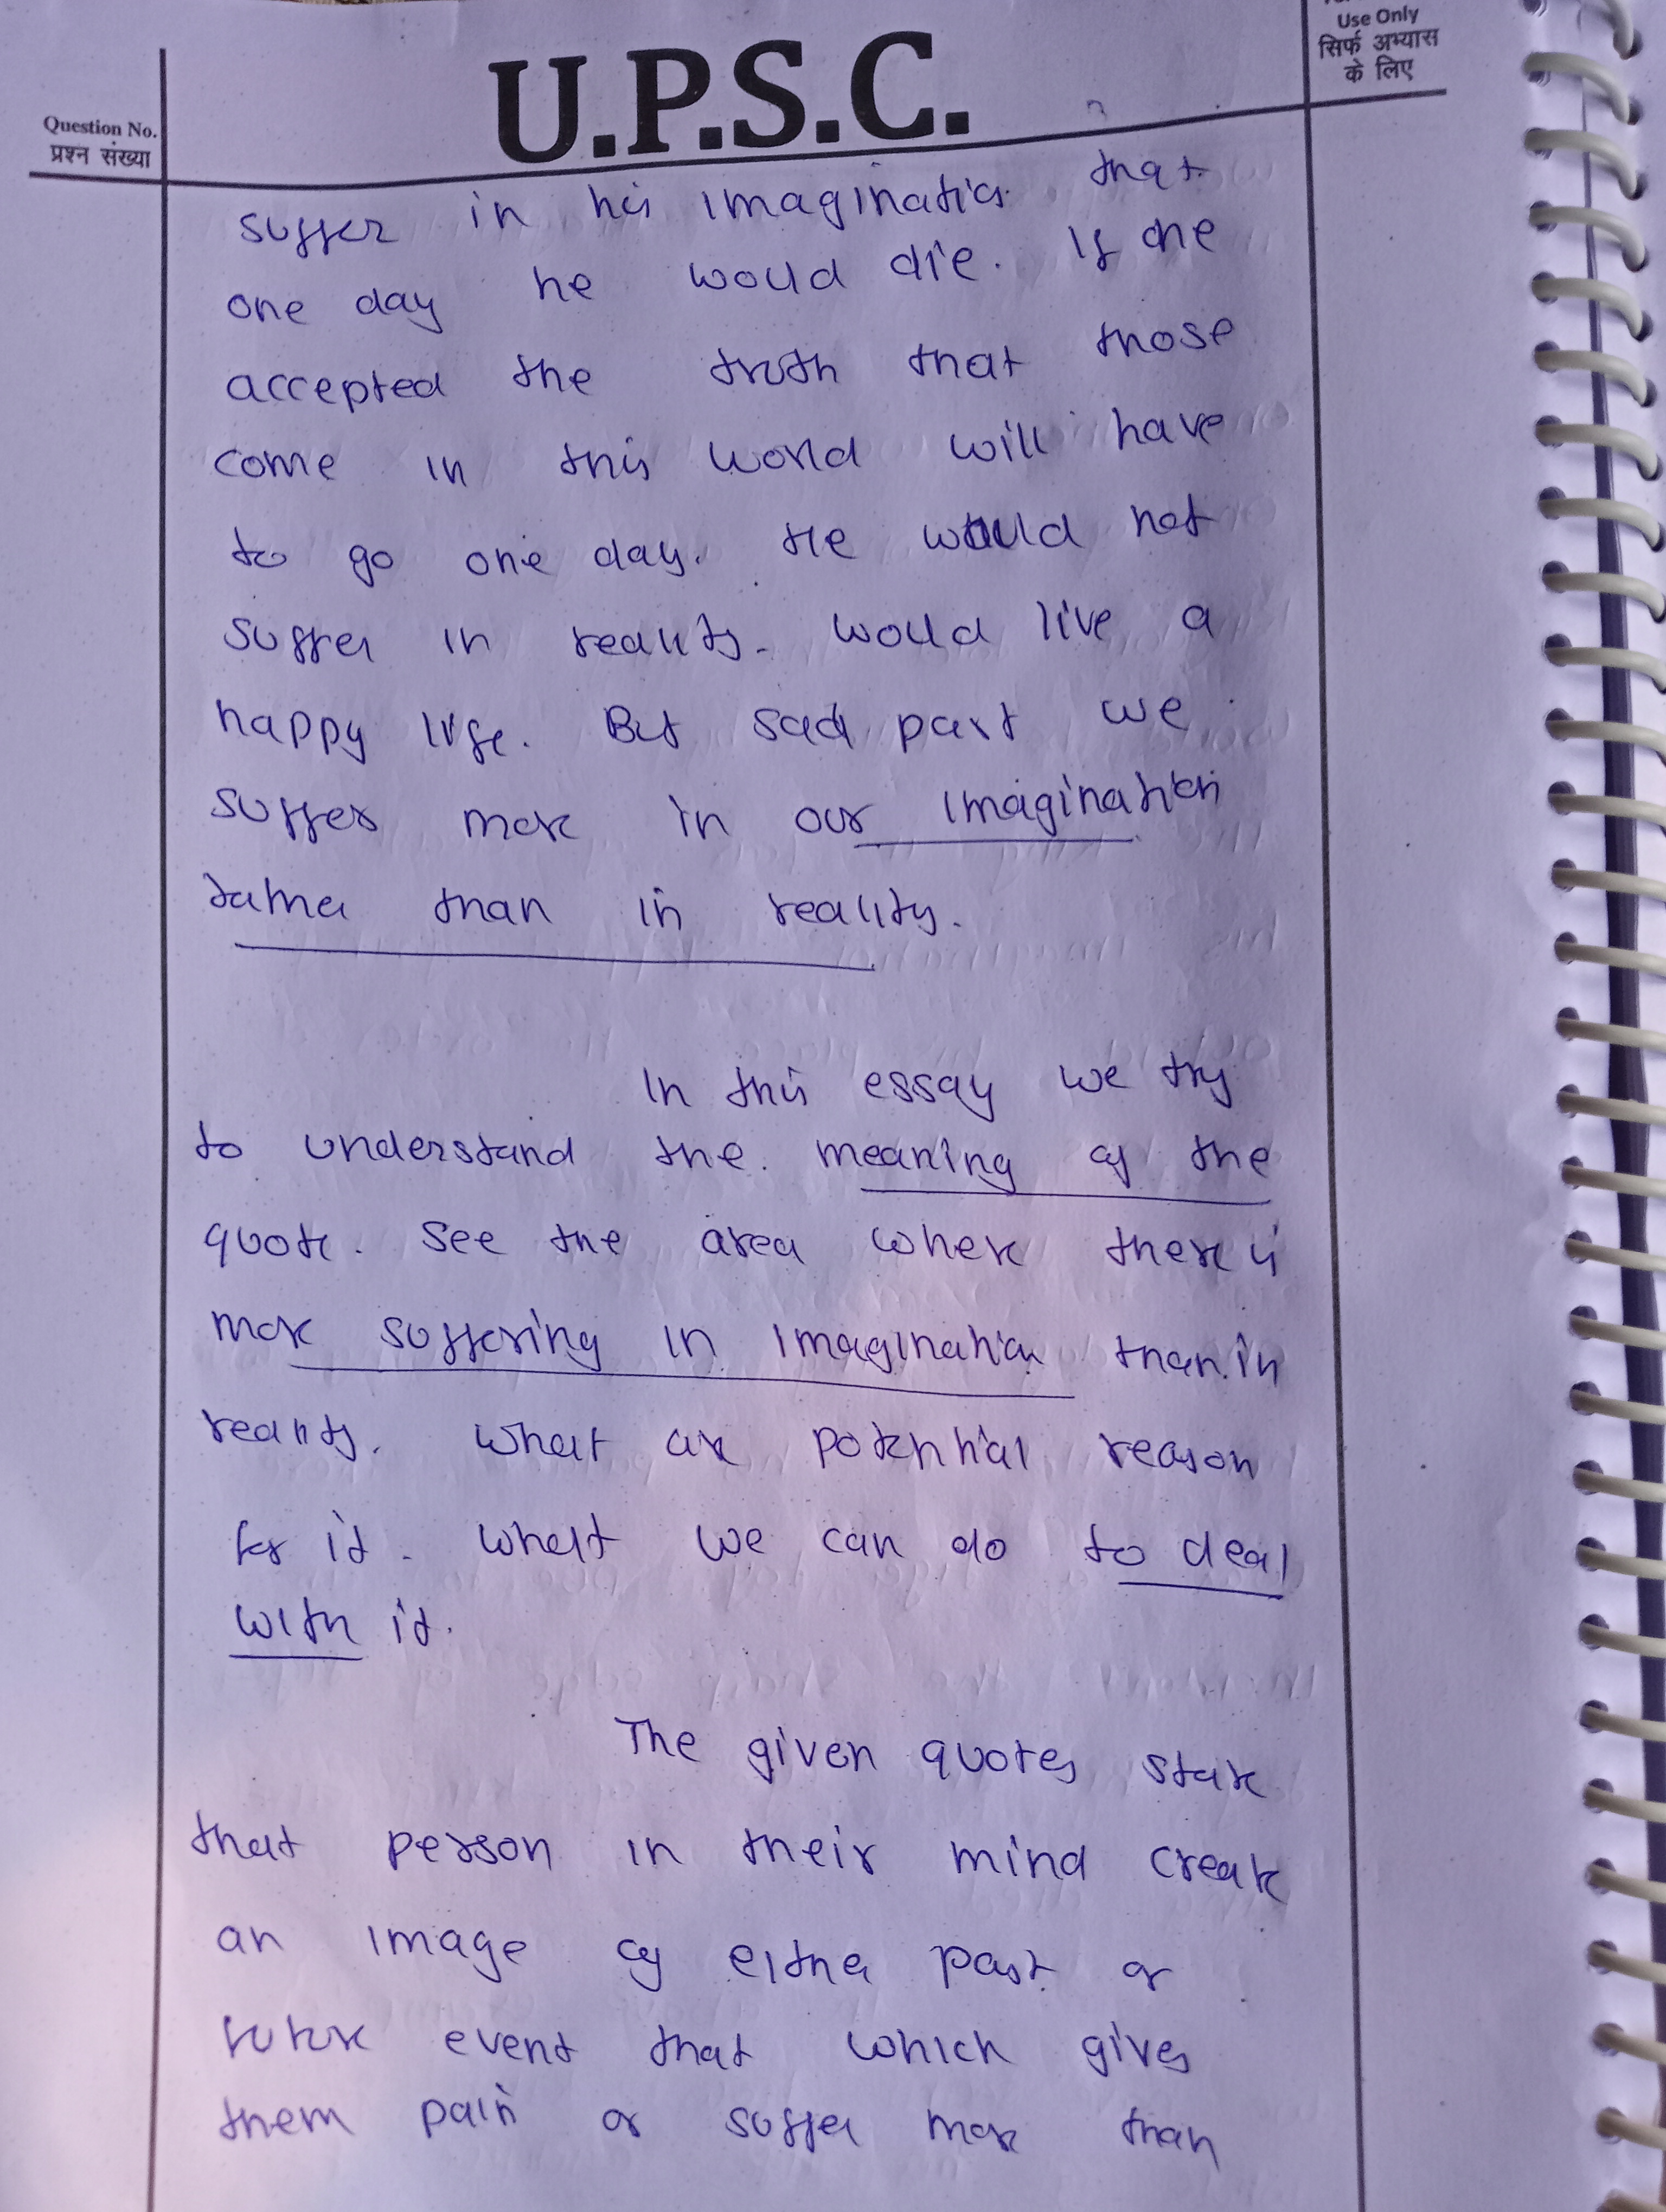 Use Only
सिर्फ अभ्यास
के लिए
U.P.S.C.
Question No.
प्रश्न संख्या
suffer in his imagination that
one day he would die. If one
accepted the truth that those
come in this world will have
to go one day. He would not
suffer in reality. would live a
happy life. But sad part we
suffer more in our imagination
rather than in reality.
In this essay we try
to understand the meaning of the
quote. See the area where there is
more suffering in imagination than in
reality. What are potential reason
for it. What we can do to deal
with it.
The given quotes state
that person in their mind create
an image of either past or
future event that which gives
them pain or suffer more than